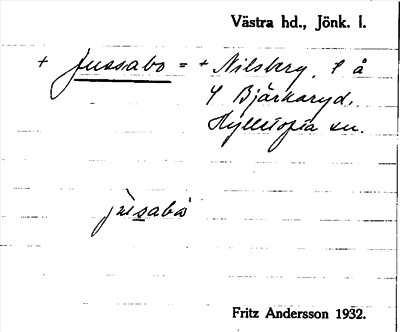 Västra hd., Jönk. l.
+ Jussabo = + Nilsberg, t å
4 Bjärkaryd,
Hylletofta sn.
jusabo
Fritz Andersson 1932.